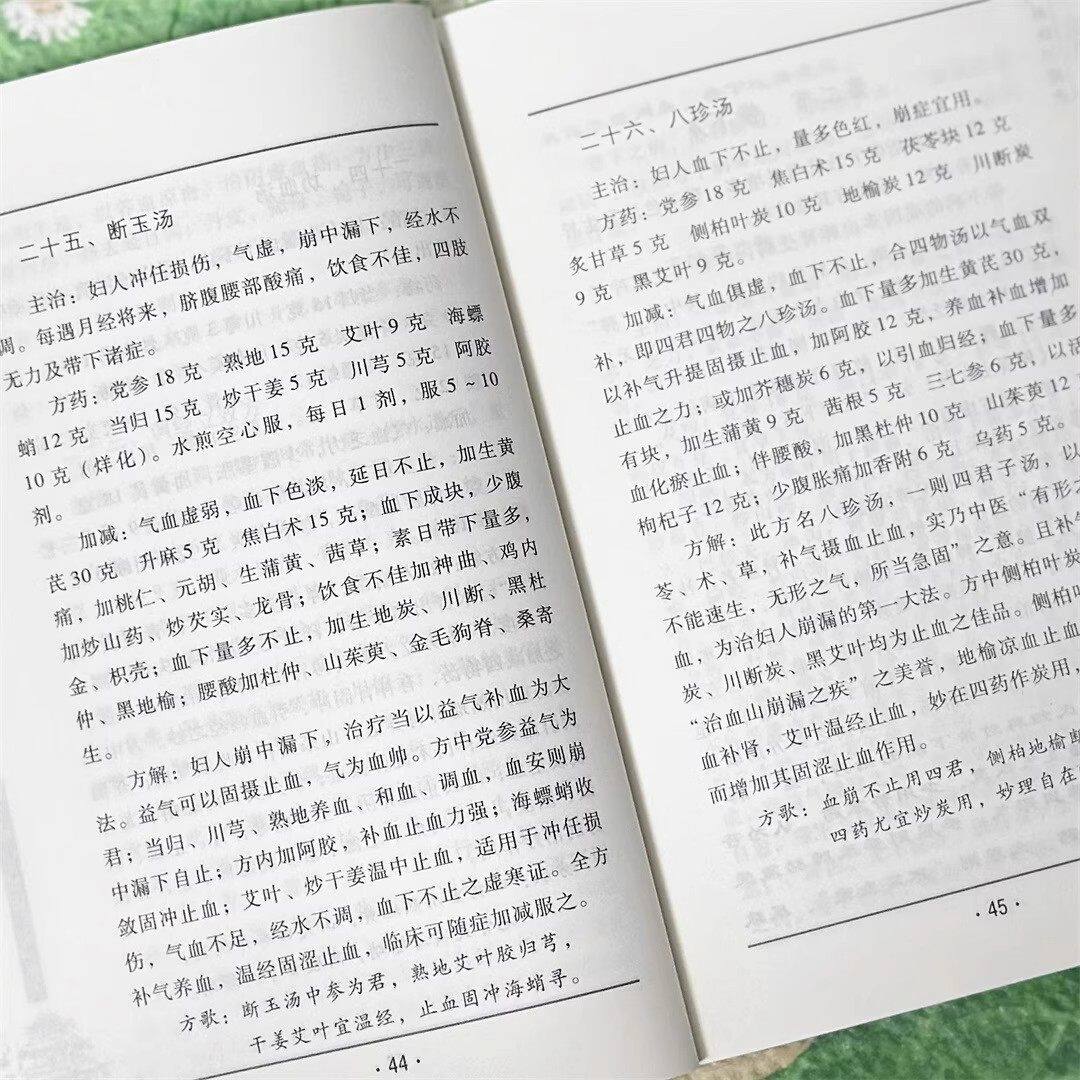 二十五、断玉汤
主治：妇人冲任损伤，气虚，崩中漏下，经水不
调。每遇月经将来，脐腹腰部酸痛，饮食不佳，四肢
无力及带下诸症。
方药：党参18克 熟地15克 艾叶9克 海螵
蛸12克 当归15克 炒干姜5克 川芎5克 阿胶
10克（烊化）。水煎空心服，每日1剂，服5～10
剂。
加减：气血虚弱，血下色淡，延日不止，加生黄
芪30克 升麻5克 焦白术15克；血下成块，少腹
痛，加桃仁、元胡、生蒲黄、茜草；素日带下量多，
加炒山药、炒芡实、龙骨；饮食不佳加神曲、鸡内
金、枳壳；血下量多不止，加生地炭、川断、黑杜
仲、黑地榆；腰酸加杜仲、山茱萸、金毛狗脊、桑寄
生。
方解：妇人崩中漏下，治疗当以益气补血为大
法。益气可以固摄止血，气为血帅。方中党参益气为
君；当归、川芎、熟地养血、和血、调血，血安则崩
中漏下自止；方内加阿胶，补血止血力强；海螵蛸收
敛固冲止血；艾叶、炒干姜温中止血，适用于冲任损
伤，气血不足，经水不调，血下不止之虚寒证。全方
补气养血，温经固涩止血，临床可随症加减服之。
方歌：断玉汤中参为君，熟地艾叶胶归芎，
干姜艾叶宜温经，止血固冲海蛸寻。
·44·
二十六、八珍汤
主治：妇人血下不止，量多色红，崩症宜用。
方药：党参18克 焦白术15克 茯苓块12克
炙甘草5克 侧柏叶炭10克 地榆炭12克 川断炭
9克 黑艾叶9克。
加减：气血俱虚，血下不止，合四物汤以气血双
补，即四君四物之八珍汤。血下量多加生黄芪30克，
以补气升提固摄止血，加阿胶12克，养血补血增加
止血之力；或加芥穗炭6克，以引血归经；血下量多
有块，加生蒲黄9克 茜根5克 三七参6克，以活
血化瘀止血；伴腰酸，加黑杜仲10克 山茱萸12
枸杞子12克；少腹胀痛加香附6克 乌药5克。
方解：此方名八珍汤，一则四君子汤，以
苓、术、草，补气摄血止血，实乃中医“有形之
不能速生，无形之气，所当急固”之意。且补气
血，为治妇人崩漏的第一大法。方中侧柏叶炭
炭、川断炭、黑艾叶均为止血之佳品。侧柏叶
“治血山崩漏之疾”之美誉，地榆凉血止血
血补肾，艾叶温经止血，妙在四药作炭用，
而增加其固涩止血作用。
方歌：血崩不止用四君，侧柏地榆断
四药尤宜炒炭用，妙理自在
·45·